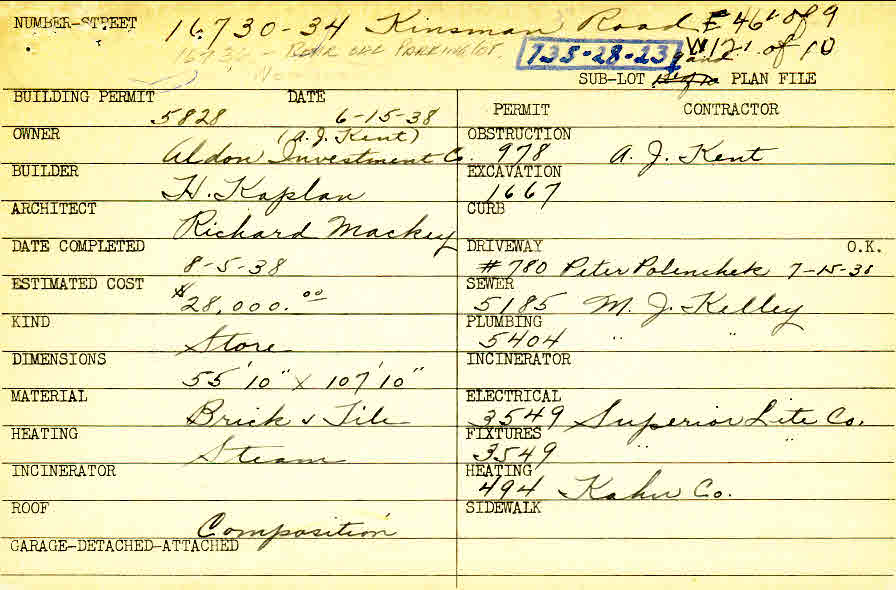 NUMBER-STREET 16730-34 Kinsman Road E 46' of 9
16730 - Rear Parking Lot. 735-28-23 and W 12' of 10
SUB-LOT PLAN FILE
BUILDING PERMIT 5828 DATE 6-15-38
OWNER (A. J. Kent)
Aldon Investment Co.
BUILDER H. Kaplan
ARCHITECT Richard Mackey
DATE COMPLETED 8-5-38
ESTIMATED COST $28,000.00
KIND Store
DIMENSIONS 55'10" x 107'10"
MATERIAL Brick & Tile
HEATING Steam
INCINERATOR
ROOF Composition
GARAGE-DETACHED-ATTACHED
PERMIT CONTRACTOR
OBSTRUCTION 978 A. J. Kent
EXCAVATION 1667
CURB
DRIVEWAY O.K.
#780 Peter Polenchek 7-15-38
SEWER 5185 M. J. Kelley
PLUMBING 5404 " "
INCINERATOR
ELECTRICAL 3549 Superior Lite Co.
FIXTURES 3549 " "
HEATING 494 Kahn Co.
SIDEWALK